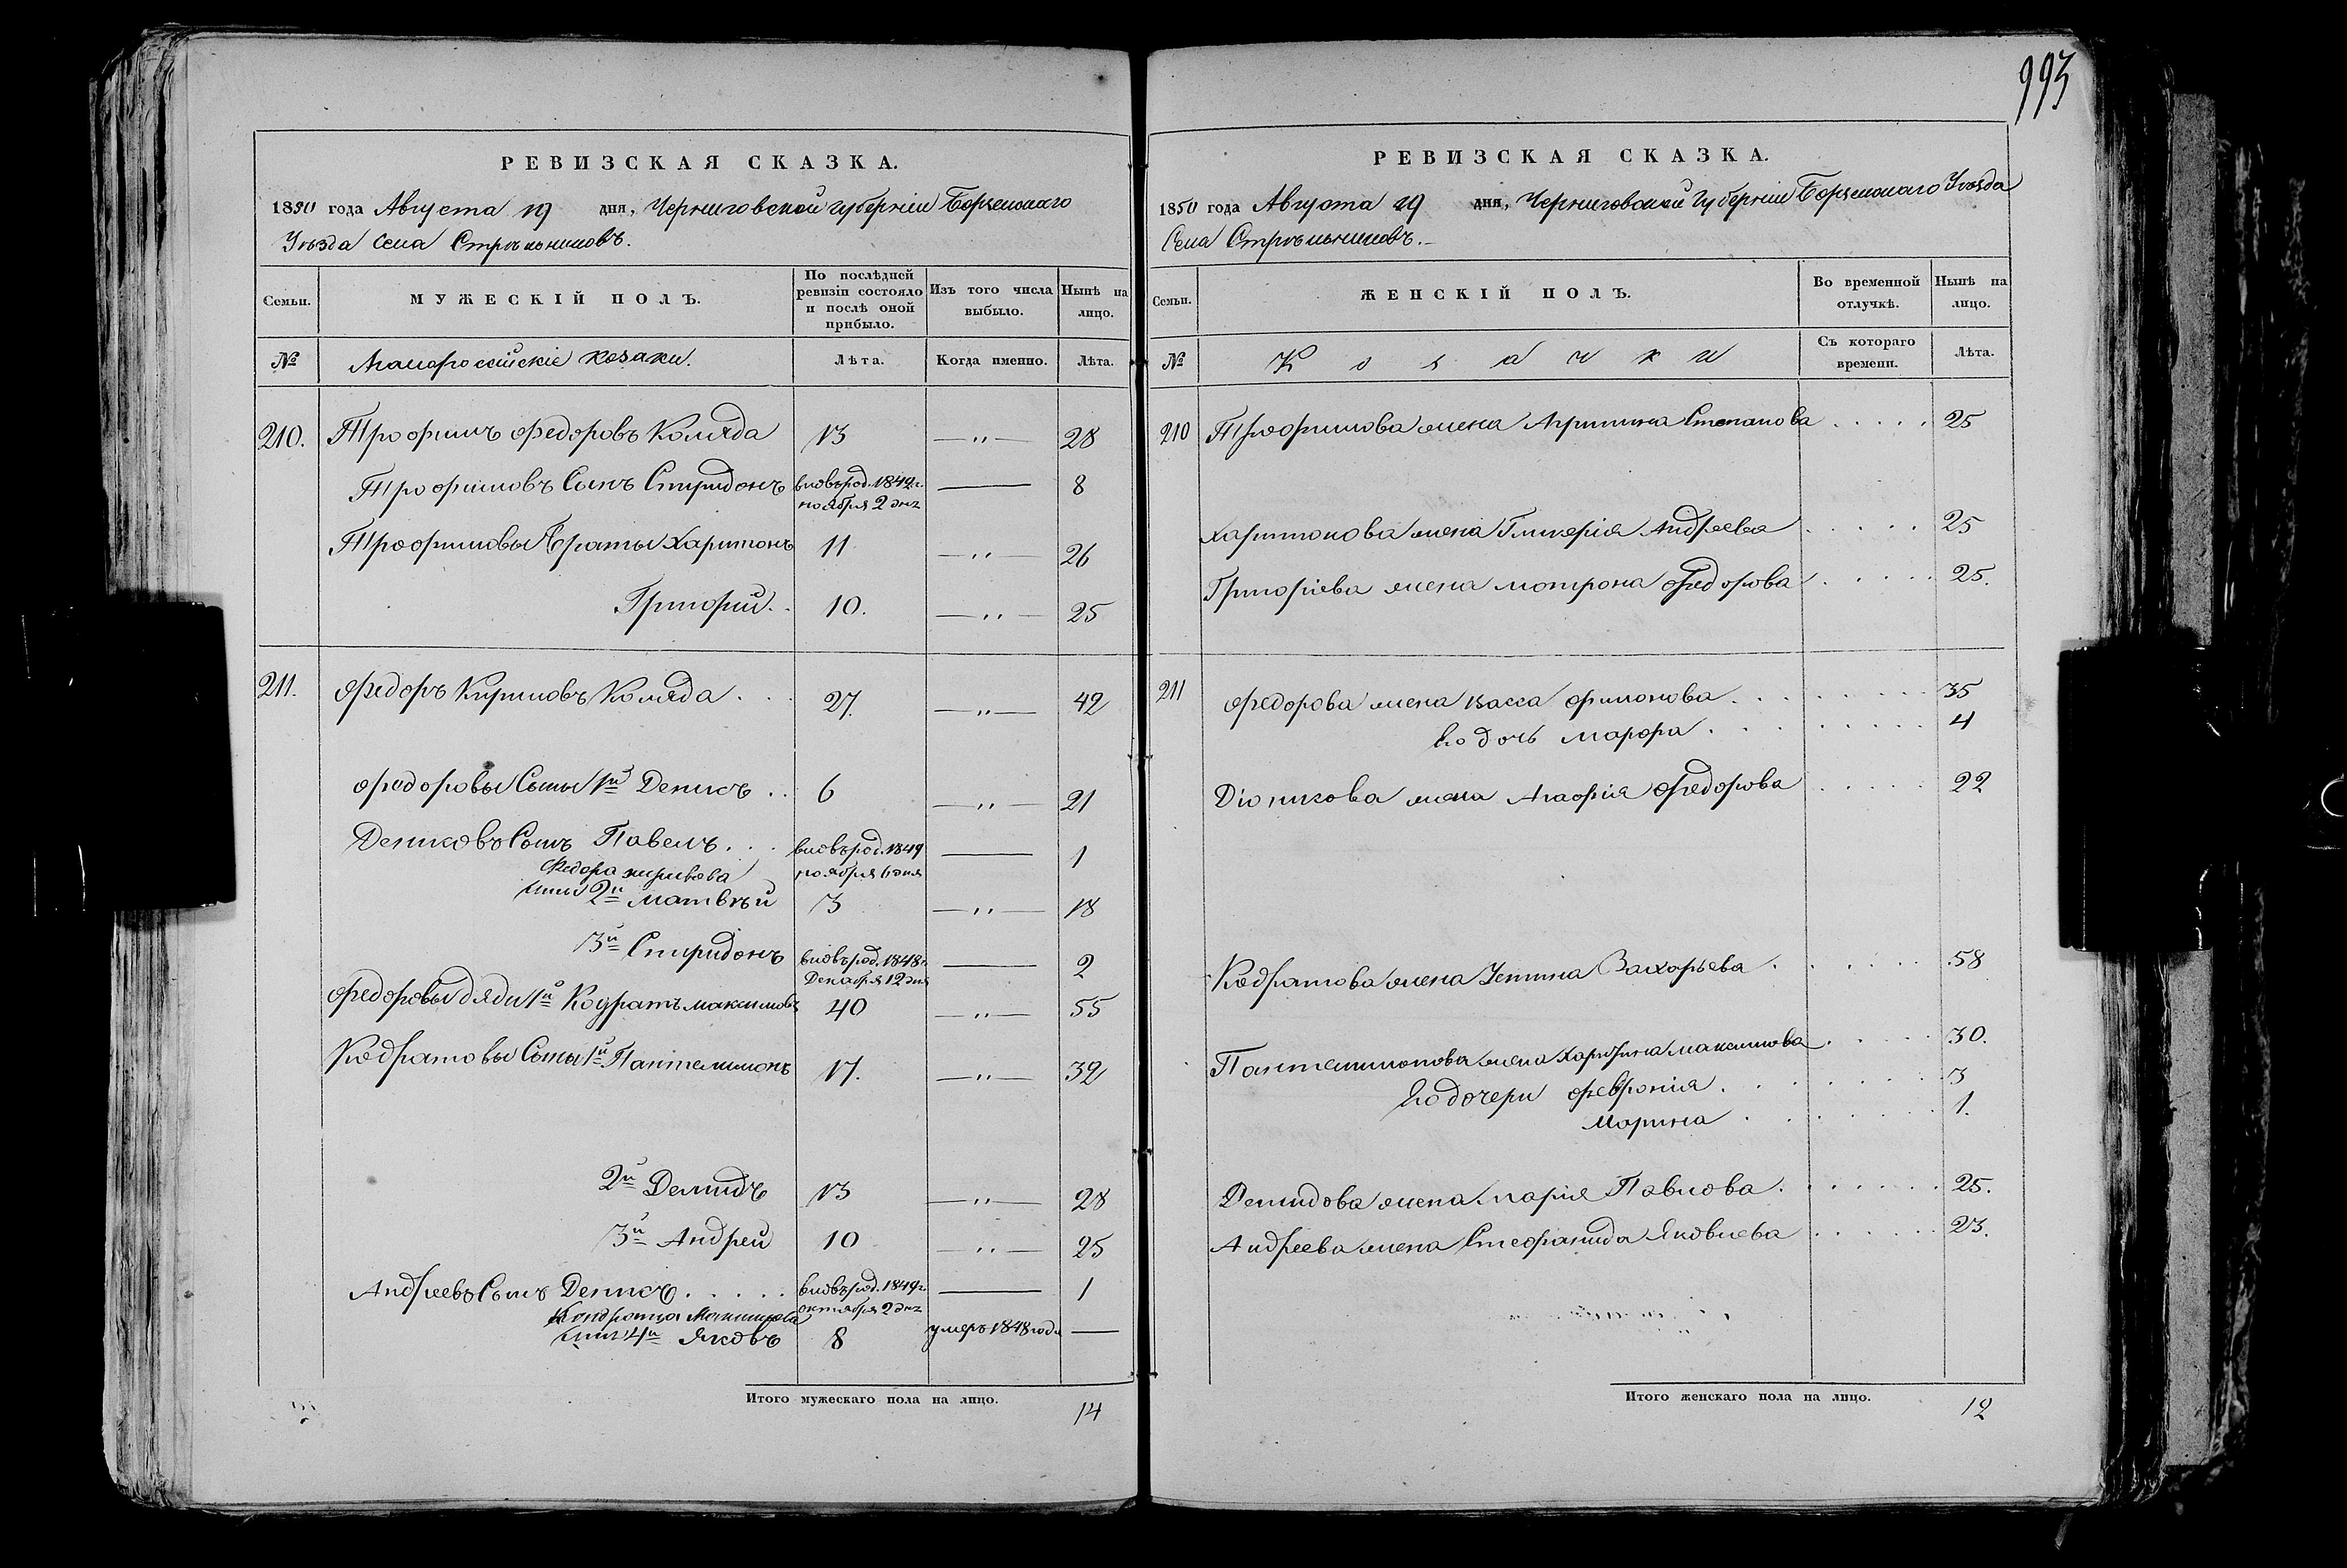 993
РЕВИЗСКАЯ СКАЗКА.
1850 года Августа 19 дня, Черниговской губерніи Борзенскаго
Уѣзда Села Стрѣльниковъ.
Семьи. МУЖЕСКІЙ ПОЛЪ. По послѣдней ревизіи состояло и послѣ оной прибыло. Изъ того числа выбыло. Нынѣ на лицо.
№ Малороссійскіе козаки. Лѣта. Когда именно. Лѣта.
210. Трофимъ Федоровъ Коляда 13 —„— 28
Трофимовъ Сынъ Спиридонъ вновърод. 1842г. ноября 2 дня — 8
Трофимовы Браты Харитонъ 11 —„— 26
Григорій. 10. —„— 25
211. Федоръ Кириловъ Коляда . . 27. —„— 42
Федоровы Сыны 1й Денисъ . . 6 —„— 21
Денисовъ Сынъ Павелъ . . . вновърод. 1849 ноября 6 дня — 1
Федора Кирилова
сыны 2й Матвѣй 3 —„— 18
3й Спиридонъ вновърод. 1848г. Декабря 12 дня — 2
Федоровы дяди 1й Кодратъ Максимовъ 40 —„— 55
Кодратовы Сыны 1й Пантелимонъ 17. —„— 32
2й Демидъ 13 —„— 28
3й Андрей 10 —„— 25
Андреевъ Сынъ Денисъ . . . . . вновърод. 1849г. октября 2 дня — 1
Кондрата Максимова
сынъ 4й Яковъ 8 умеръ 1848 года —
Итого мужескаго пола на лицо. 14
РЕВИЗСКАЯ СКАЗКА.
1850 года Августа 19 дня, Черниговской Губерніи Борзенскаго Уѣзда
Села Стрѣльниковъ.
Семьи. ЖЕНСКІЙ ПОЛЪ. Во временной отлучкѣ. Нынѣ на лицо.
№ Козачки Съ котораго времени. Лѣта.
210 Трофимова жена Агрипина Степанова . . . . . 25
Харитонова жена Гликерія Андреева . . . . . 25
Григоріева жена Мотрона Федорова . . . . . 25.
211 Федорова жена Васса Филонова . . . . . 35
Ео дочь Марфа . . . . . 4
Діонисова жена Агафія Федорова . . . . . 22
Кодратова жена Устина Захарьева . . . . . 58
Пантелимонова жена Харитина Максимова . . . . . 30.
Ео дочери Февронія . . . . . 3
Марина . . . . . 1.
Демидова жена Марія Павлова . . . . . 25.
Андреева жена Стефанида Яковлева . . . . . 23.
Итого женскаго пола на лицо. 12